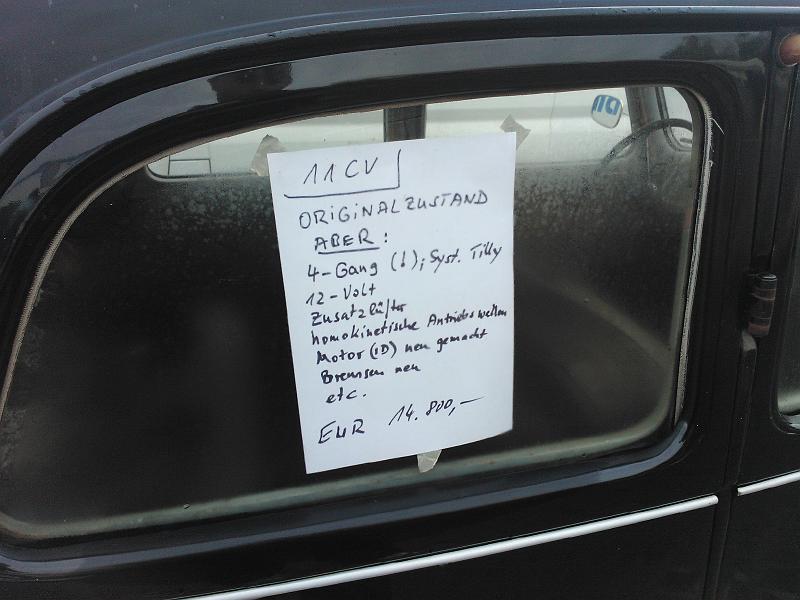 11CV
ORIGINALZUSTAND
ABER:
4-Gang (!); Syst. Tilly
12-Volt
Zusatzlüfter
homokinetische Antriebswellen
Motor (ID) neu gemacht
Bremsen neu
etc.
EUR 14.800,—